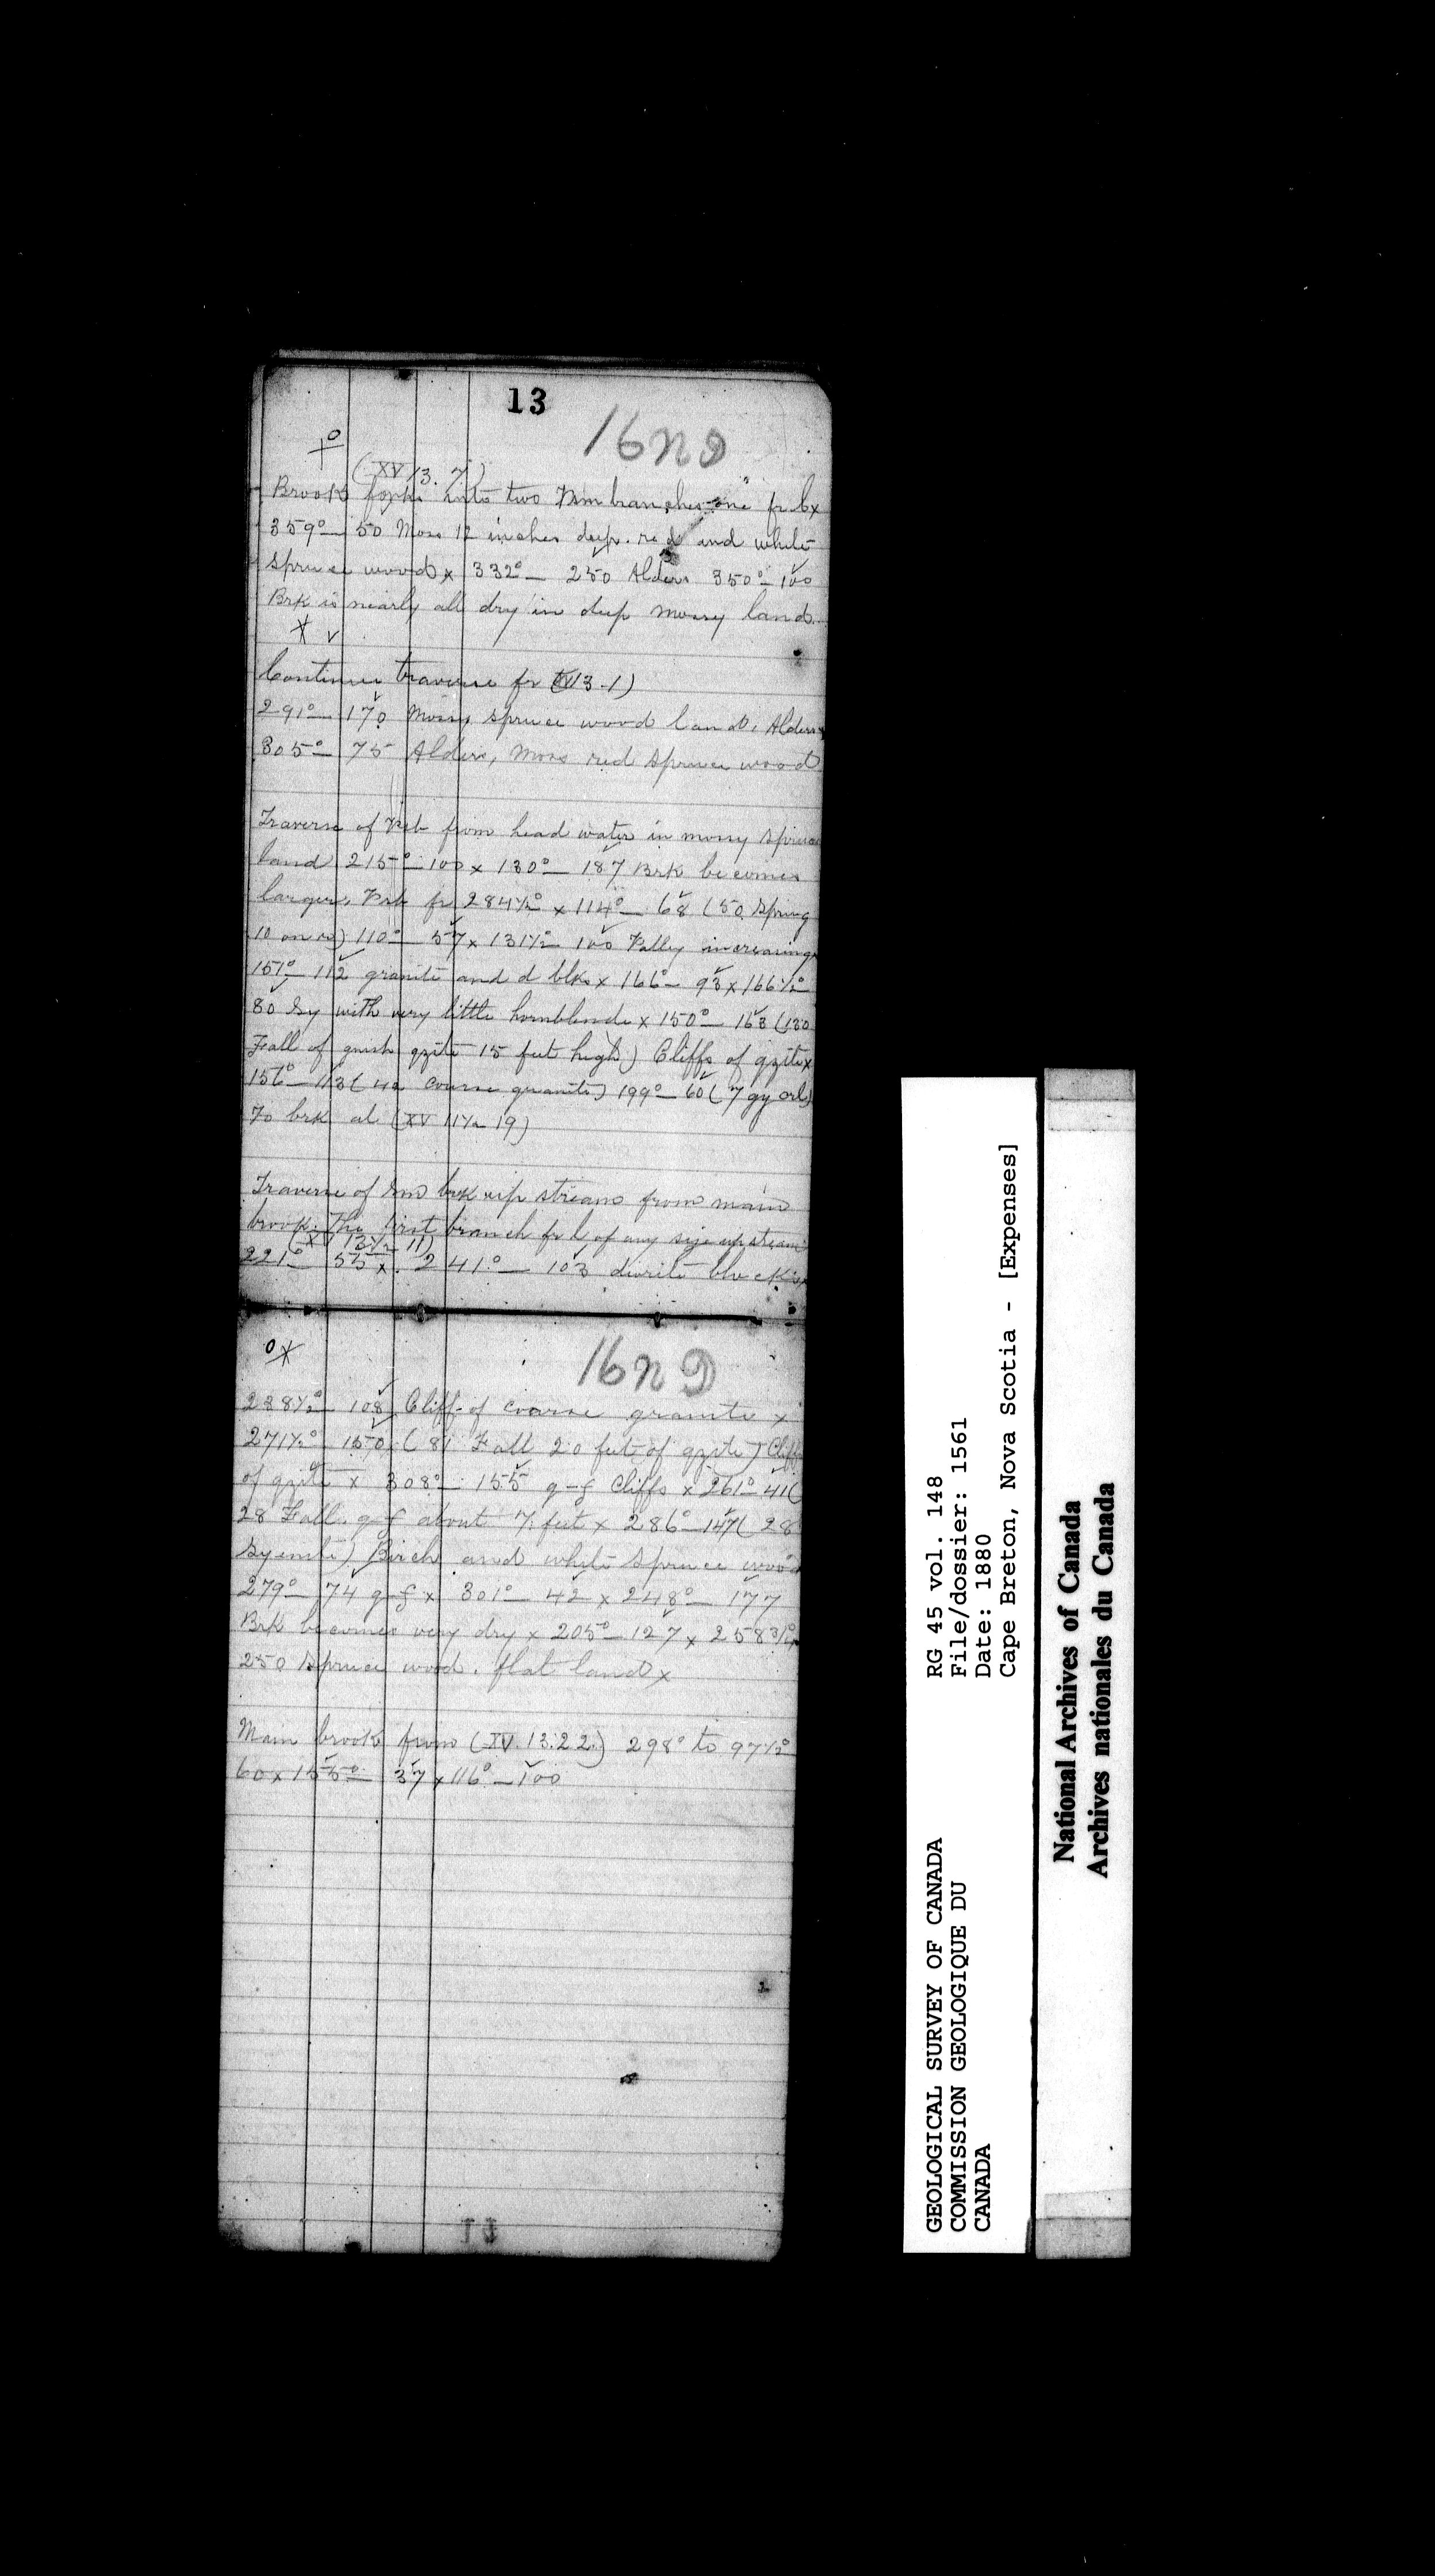 13
16 n D
(XV 13. 7)
Brook forks into two branches one fr
359° – 50 Moss 12 inches deep. red and white
spruce wood x 332° – 250 Alders 350° – 100
Brk is nearly all dry in deep mossy land.
Continue traverse fr (XV 13-1)
291° – 170 Mossy spruce wood land, Alders
305° – 75 Alders, Moss red spruce wood
Traverse of from head water in mossy spruce
land 215° – 100 x 130° – 187 Brk becomes
larger, fr 284½° x 114° – 68 (50 Spring
10 on) 110° – 57 x 131½° 100 Valley increasing
151° – 112 granite and d blks x 166° – 93 x 166½°
80 Sy with very little hornblende x 150° – 163 (130
Fall of qzite 15 feet high) Cliffs of qzite x
156° – 113 (42 coarse granite) 199° – 60 (7 gy
To brk at (XV 11½ 19)
Traverse of brk up stream from main
brook. The first branch fr l of any size upstream
(XV 13½ 11)
221° – 55 x 241° – 103 diorite blocks x
16 n D
288½° 108 Cliff of coarse granite x
271½° 150 (81 Fall 20 feet of qzite) Cliffs
of qzite x 308° – 155 q-f Cliffs x 261° – 41 (
28 Fall q-f about 7 feet x 286° – 147 (28
Syenite) Birch and white spruce wood
279° – 74 q-f x 301° – 42 x 248° – 177
Brk becomes very dry x 205° – 127 x 258
250 spruce wood. flat land x
Main brook from (XV. 13.22.) 298° to 97½°
60 x 155° – 37 x 116° – 100
GEOLOGICAL SURVEY OF CANADA
COMMISSION GEOLOGIQUE DU
CANADA
RG 45 vol. 148
File/dossier: 1561
Date: 1880
Cape Breton, Nova Scotia - [Expenses]
National Archives of Canada
Archives nationales du Canada